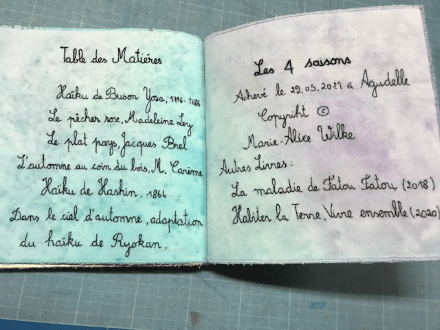 Table des Matières
Haïku de Buson Yosa, 1716-1786
Le pêcher rose, Madeleine Ley
Le plat pays, Jacques Brel
L'automne au coin du bois, M. Carême
Haïku de Hashin, 1864
Dans le ciel d'automne, adaptation
du haïku de Ryokan.
Les 4 saisons
Achevé le 29.05.2021 à Agudelle
Copyriht ©
Marie-Alice Wilke
Autres Livres:
La maladie de Fatou Fatou (2018)
Habiter la Terre, Vivre ensemble (2020)